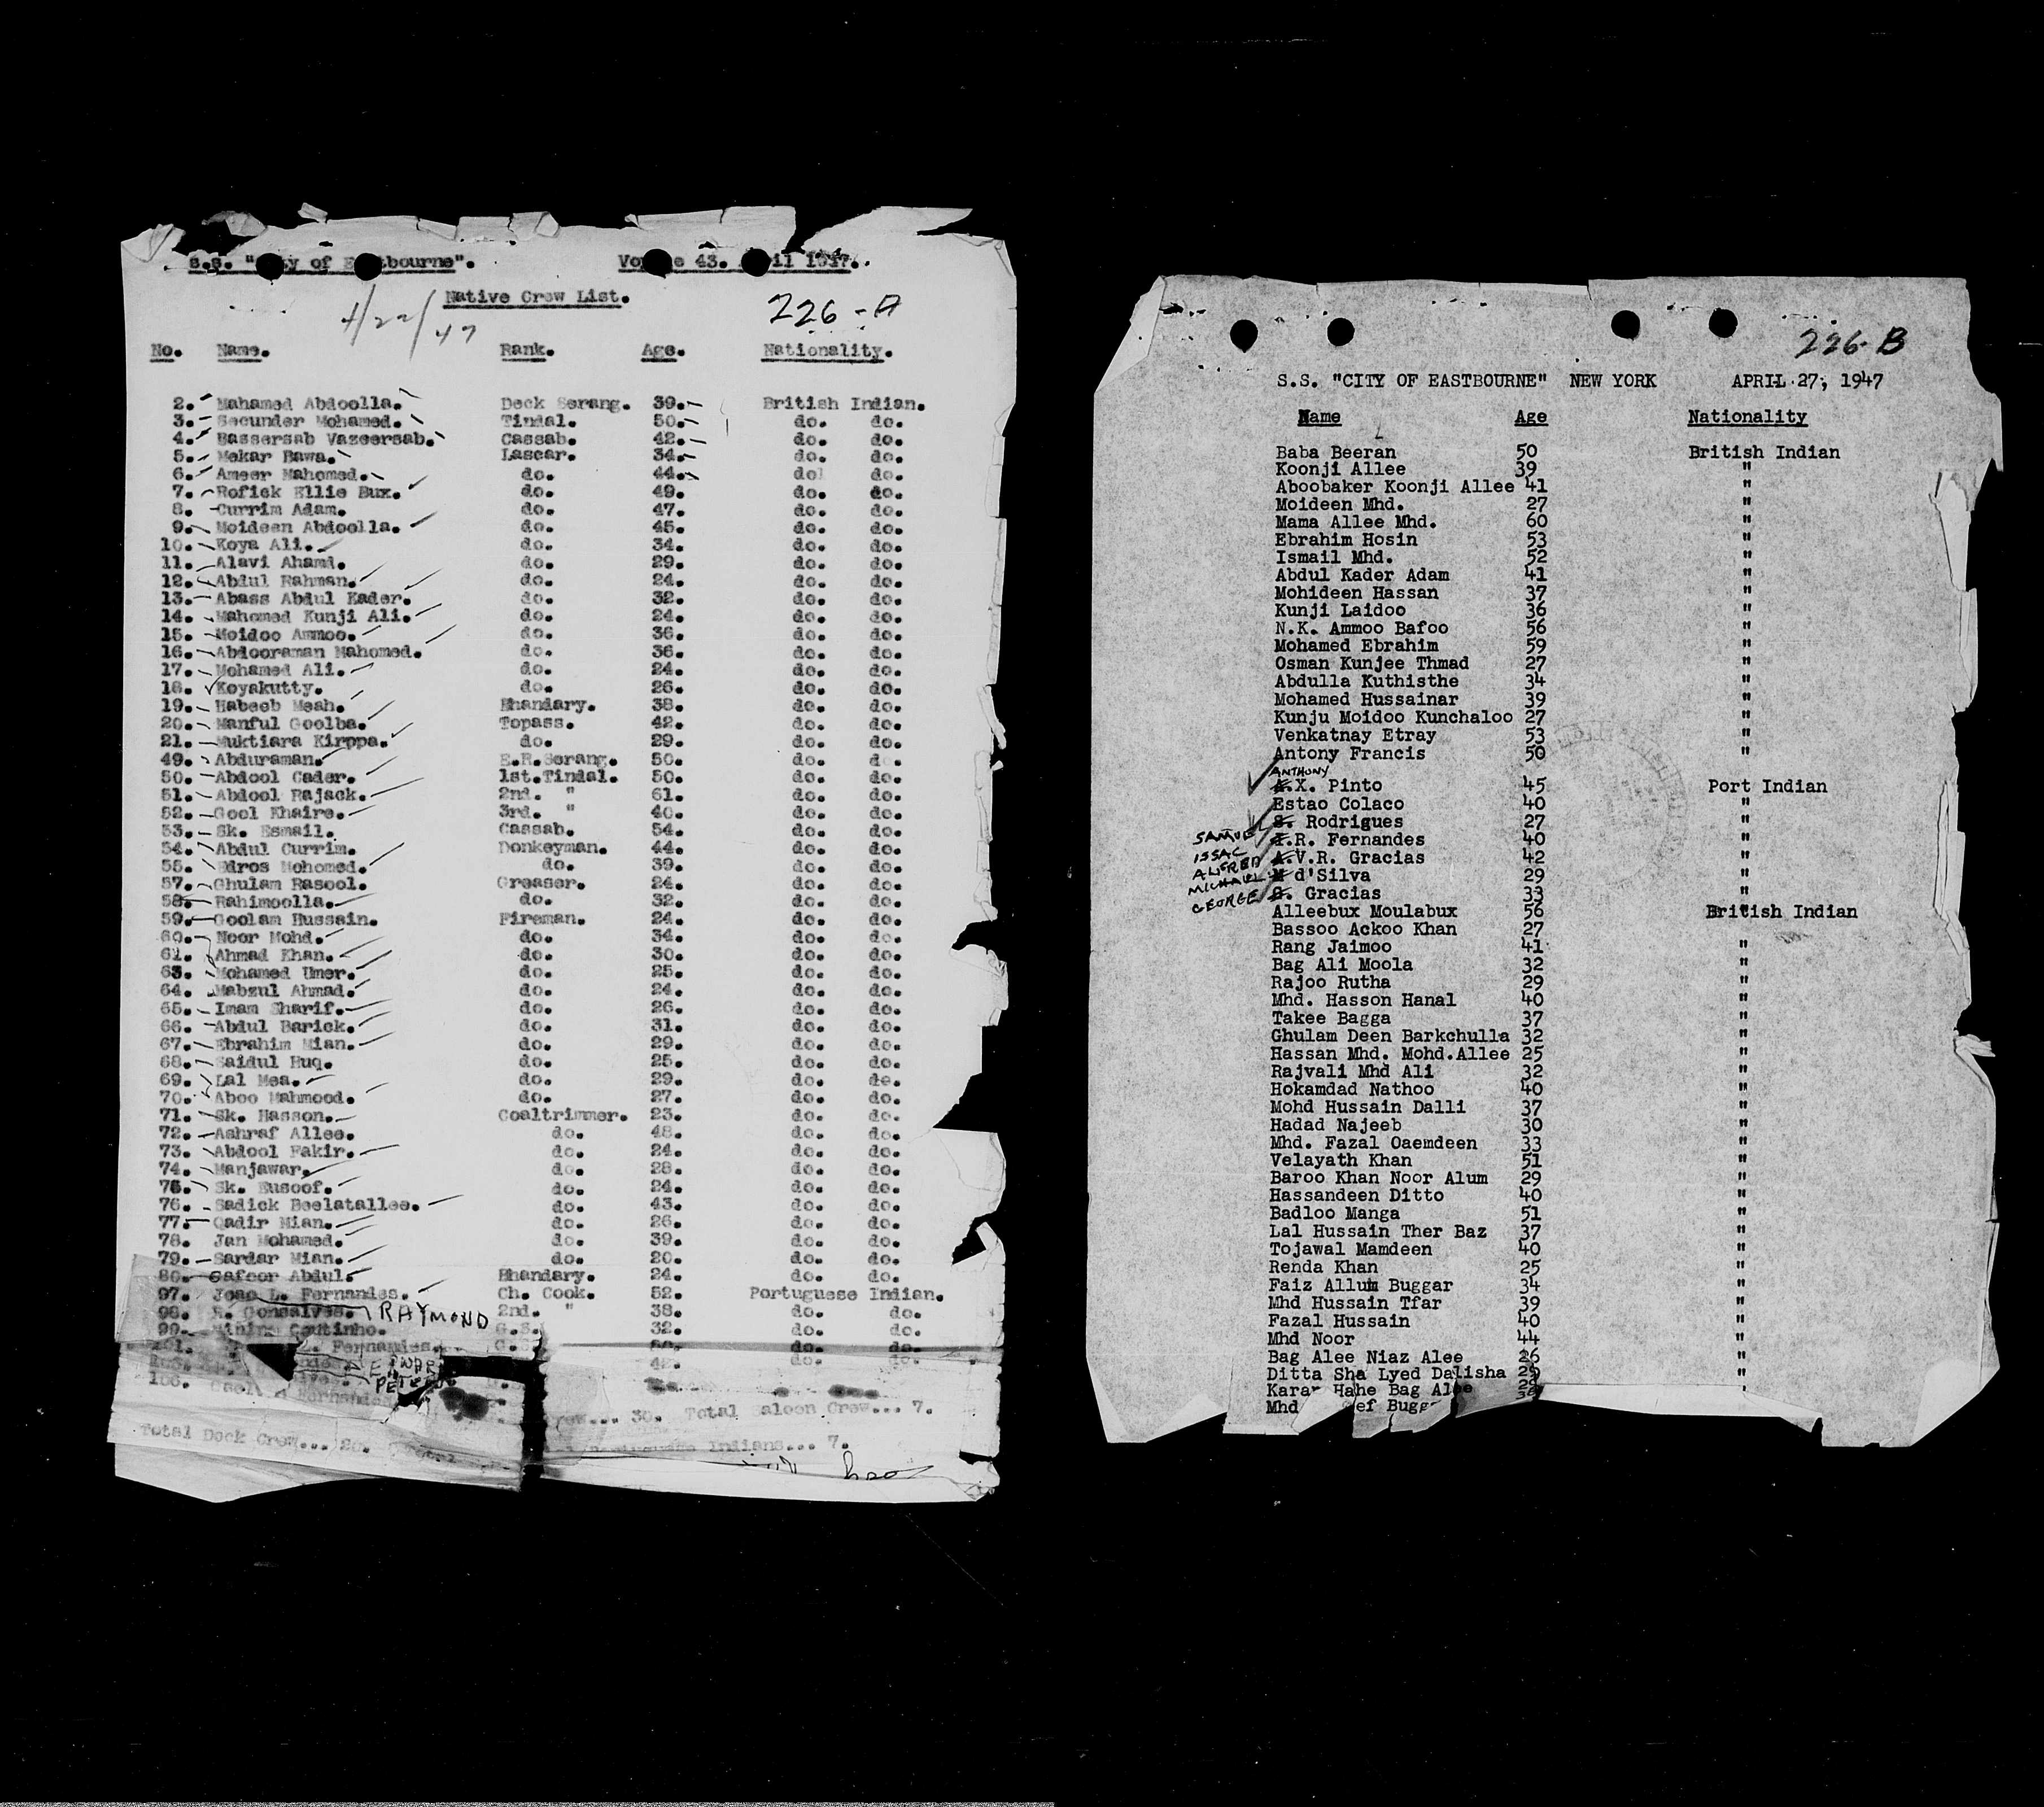 s.s. "City of Eastbourne". Voyage 43. April 1947.
Native Crew List.
4/22/47
226-A
No. Name. Rank. Age. Nationality.
2. Mahamed Abdoolla. Deck Serang. 39. British Indian.
3. Secunder Mohamed. Tindal. 50. do. do.
4. Bassersab Vazeersab. Cassab. 42. do. do.
5. Mekar Bawa. Lascar. 34. do. do.
6. Ameer Mahomed. do. 44. do. do.
7. Rofick Ellie Bux. do. 49. do. do.
8. Currim Adam. do. 47. do. do.
9. Moideen Abdoolla. do. 45. do. do.
10. Koya Ali. do. 34. do. do.
11. Alavi Ahamd. do. 29. do. do.
12. Abdul Rahman. do. 24. do. do.
13. Abass Abdul Kader. do. 32. do. do.
14. Mahomed Kunji Ali. do. 24. do. do.
15. Moidoo Ammoo. do. 36. do. do.
16. Abdooraman Mahomed. do. 36. do. do.
17. Mohamed Ali. do. 24. do. do.
18. Koyakutty. do. 26. do. do.
19. Habeeb Meah. Bhandary. 38. do. do.
20. Manful Goolba. Topass. 42. do. do.
21. Muktiara Kirppa. do. 29. do. do.
49. Abduraman. E.R.Serang. 50. do. do.
50. Abdool Cader. 1st.Tindal. 50. do. do.
51. Abdool Rajack. 2nd. " 61. do. do.
52. Gool Khaire. 3rd. " 40. do. do.
53. Sk. Esmail. Cassab. 54. do. do.
54. Abdul Currim. Donkeyman. 44. do. do.
55. Edros Mohomed. do. 39. do. do.
57. Ghulam Rasool. Greaser. 24. do. do.
58. Rahimoolla. do. 32. do. do.
59. Goolam Hussain. Fireman. 24. do. do.
60. Noor Mohd. do. 34. do. do.
61. Ahmad Khan. do. 30. do. do.
63. Mohamed Umer. do. 25. do. do.
64. Mabzul Ahmad. do. 24. do. do.
65. Imam Sharif. do. 26. do. do.
66. Abdul Barick. do. 31. do. do.
67. Ebrahim Mian. do. 29. do. do.
68. Saidul Huq. do. 25. do. do.
69. Lal Mea. do. 29. do. do.
70. Aboo Mahmood. do. 27. do. do.
71. Sk. Hasson. Coaltrimmer. 23. do. do.
72. Ashraf Allee. do. 48. do. do.
73. Abdool Fakir. do. 24. do. do.
74. Manjawar. do. 28. do. do.
75. Sk. Eusoof. do. 24. do. do.
76. Sadick Beelatallee. do. 43. do. do.
77. Qadir Mian. do. 26. do. do.
78. Jan Mohamed. do. 39. do. do.
79. Sardar Mian. do. 20. do. do.
80. Gafoor Abdul. Bhandary. 24. do. do.
97. Joao L. Fernandes. Ch. Cook. 52. Portuguese Indian.
98. R. Gonsalves. RAYMOND 2nd. " 38. do. do.
99. Coutinho. G.S. 32. do. do.
Fernandes. do. do.
42. do. do.
PETER
106. Fernandes
30. Total Saloon Crew... 7.
Total Deck Crew... 20.
Portuguese Indians... 7.
226-B
S.S. "CITY OF EASTBOURNE" NEW YORK APRIL 27, 1947
Name Age Nationality
Baba Beeran 50 British Indian
Koonji Allee 39 "
Aboobaker Koonji Allee 41 "
Moideen Mhd. 27 "
Mama Allee Mhd. 60 "
Ebrahim Hosin 53 "
Ismail Mhd. 52 "
Abdul Kader Adam 41 "
Mohideen Hassan 37 "
Kunji Laidoo 36 "
N.K. Ammoo Bafoo 56 "
Mohamed Ebrahim 59 "
Osman Kunjee Thmad 27 "
Abdulla Kuthisthe 34 "
Mohamed Hussainar 39 "
Kunju Moidoo Kunchaloo 27 "
Venkatnay Etray 53 "
Antony Francis 50 "
ANTHONY
A.X. Pinto 45 Port Indian
Estao Colaco 40 "
S. Rodrigues 27 "
SAMUE I.R. Fernandes 40 "
ISSAC A.V.R. Gracias 42 "
ALFRED M d'Silva 29 "
MICHAEL G. Gracias 33 "
GEORGE Alleebux Moulabux 56 British Indian
Bassoo Ackoo Khan 27
Rang Jaimoo 41 "
Bag Ali Moola 32 "
Rajoo Rutha 29 "
Mhd. Hasson Hanal 40 "
Takee Bagga 37 "
Ghulam Deen Barkchulla 32 "
Hassan Mhd. Mohd.Allee 25 "
Rajvali Mhd Ali 32 "
Hokamdad Nathoo 40 "
Mohd Hussain Dalli 37 "
Hadad Najeeb 30 "
Mhd. Fazal Oaemdeen 33 "
Velayath Khan 51 "
Baroo Khan Noor Alum 29 "
Hassandeen Ditto 40 "
Badloo Manga 51 "
Lal Hussain Ther Baz 37 "
Tojawal Mamdeen 40 "
Renda Khan 25 "
Faiz Allum Buggar 34 "
Mhd Hussain Tfar 39 "
Fazal Hussain 40 "
Mhd Noor 44 "
Bag Alee Niaz Alee 26 "
Ditta Sha Lyed Dalisha 29 "
Karar Hahe Bag Alee 29 "
Mhd